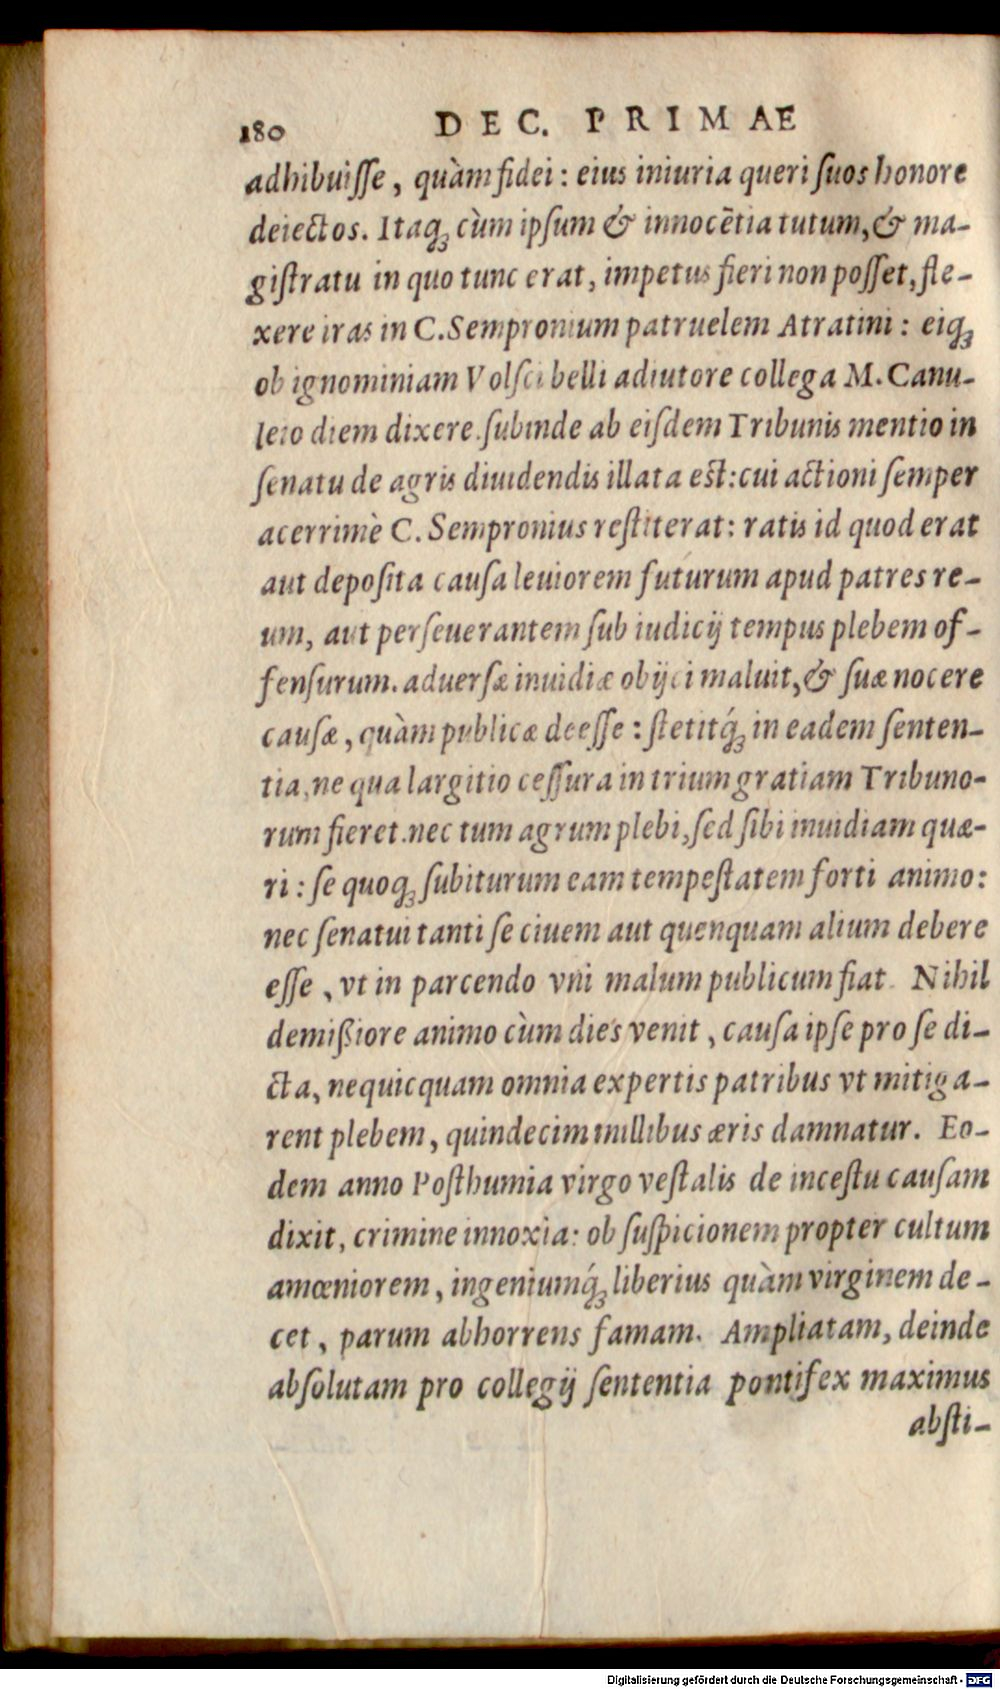 180 DEC. PRIMAE
adhibuisse, quàm fidei: eius iniuria queri suos honore
deiectos. Itaq; cùm ipsum & innocẽtia tutum, & ma-
gistratu in quo tunc erat, impetus fieri non posset, fle-
xere iras in C. Sempronium patruelem Atratini: eiq;
ob ignominiam Volsci belli adiutore collega M. Canu-
leio diem dixere. subinde ab eisdem Tribunis mentio in
senatu de agris diuidendis illata est: cui actioni semper
acerrimè C. Sempronius restiterat: ratis id quod erat
aut deposita causa leuiorem futurum apud patres re-
um, aut perseuerantem sub iudicij tempus plebem of-
fensurum. aduersæ inuidiæ obijci maluit, & suæ nocere
causæ, quàm publicæ deesse: stetitq́; in eadem senten-
tia, ne qua largitio cessura in trium gratiam Tribuno-
rum fieret. nec tum agrum plebi, sed sibi inuidiam quæ-
ri: se quoq; subiturum eam tempestatem forti animo:
nec senatui tanti se ciuem aut quenquam alium debere
esse, vt in parcendo vni malum publicum fiat. Nihil
demißiore animo cùm dies venit, causa ipse pro se di-
cta, nequicquam omnia expertis patribus vt mitiga-
rent plebem, quindecim millibus æris damnatur. Eo-
dem anno Posthumia virgo vestalis de incestu causam
dixit, crimine innoxia: ob suspicionem propter cultum
amœniorem, ingeniumq́; liberius quàm virginem de-
cet, parum abhorrens famam. Ampliatam, deinde
absolutam pro collegij sententia pontifex maximus
absti-
Digitalisierung gefördert durch die Deutsche Forschungsgemeinschaft - DFG